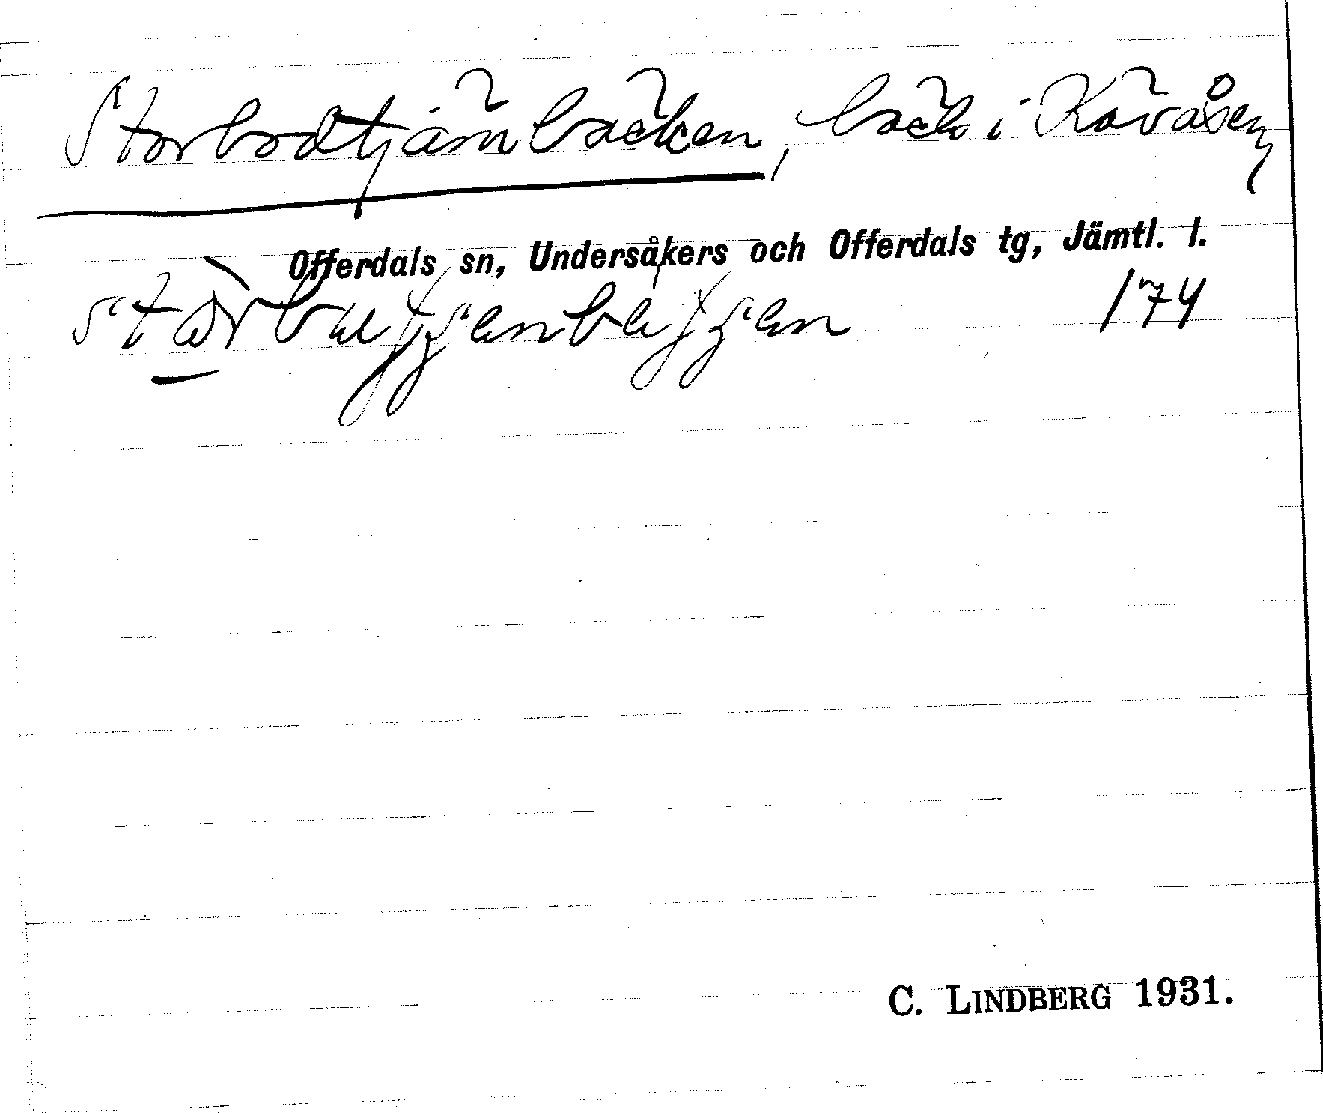 Storbodtjärnbäcken, bäck i Kävåsen,
Offerdals sn, Undersåkers och Offerdals tg, Jämtl. l.
174
C. LINDBERG 1931.